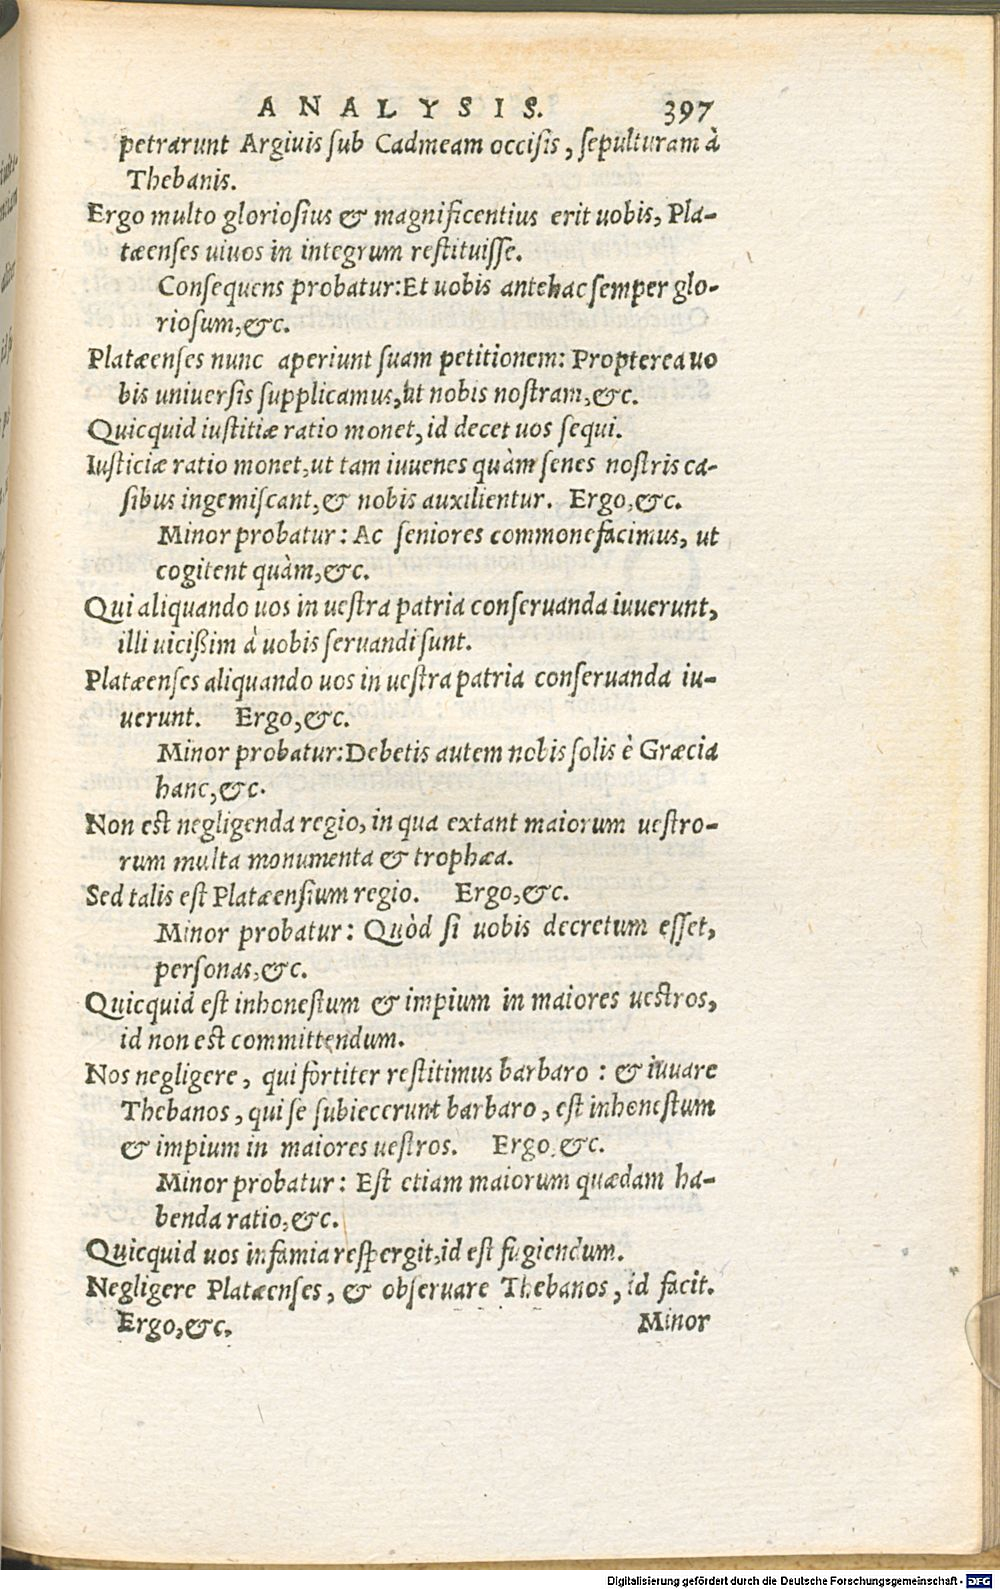 ANALYSIS. 397
petrarunt Argiuis sub Cadmeam occisis, sepulturam à
Thebanis.
Ergo multo gloriosius & magnificentius erit uobis, Pla-
tæenses uiuos in integrum restituisse.
Consequens probatur: Et uobis antehac semper glo-
riosum, &c.
Platæenses nunc aperiunt suam petitionem: Propterea uo
bis uniuersis supplicamus, ut nobis nostram, &c.
Quicquid iustitiæ ratio monet, id decet uos sequi.
Iusticiæ ratio monet, ut tam iuuenes quàm senes nostris ca-
sibus ingemiscant, & nobis auxilientur. Ergo, &c.
Minor probatur: Ac seniores commonefacimus, ut
cogitent quàm, &c.
Qui aliquando uos in uestra patria conseruanda iuuerunt,
illi uicißim à uobis seruandi sunt.
Platæenses aliquando uos in uestra patria conseruanda iu-
uerunt. Ergo, &c.
Minor probatur: Debetis autem nobis solis è Græcia
hanc, &c.
Non est negligenda regio, in qua extant maiorum uestro-
rum multa monumenta & trophæa.
Sed talis est Platæensium regio. Ergo, &c.
Minor probatur: Quòd si uobis decretum esset,
personas, &c.
Quicquid est inhonestum & impium in maiores uestros,
id non est committendum.
Nos negligere, qui fortiter restitimus barbaro: & iuuare
Thebanos, qui se subiecerunt barbaro, est inhonestum
& impium in maiores uestros. Ergo, &c.
Minor probatur: Est etiam maiorum quædam ha-
benda ratio, &c.
Quicquid uos infamia respergit, id est fugiendum.
Negligere Platæenses, & obseruare Thebanos, id facit.
Ergo, &c. Minor
Digitalisierung gefördert durch die Deutsche Forschungsgemeinschaft - DFG